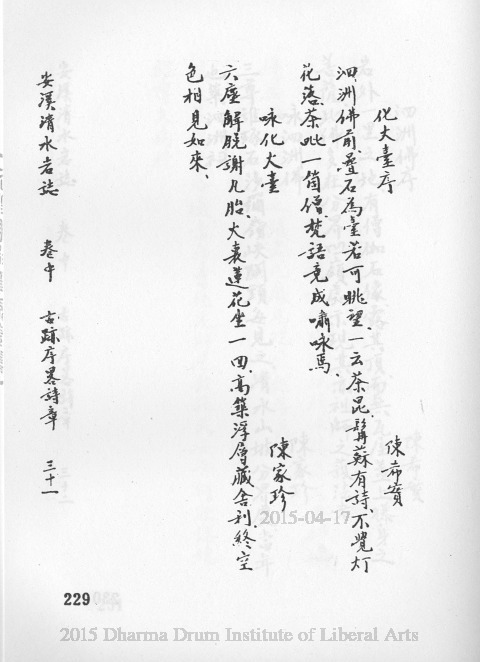 化大臺序
陳希實
泗洲佛前,疊石為臺若可眺望,一云茶昆,髯蘇有詩,不覺灯
花落茶毗一箇僧,梵語竟成嘯咏焉、
咏化大臺
陳家珍
六塵解脫謝凡胎、大裏蓮花坐一回、高築浮屠藏舍利、終空
色相見如來、
安溪清水岩誌 卷中 古跡序畧詩章 三十一
229
2015-04-17
2015 Dharma Drum Institute of Liberal Arts